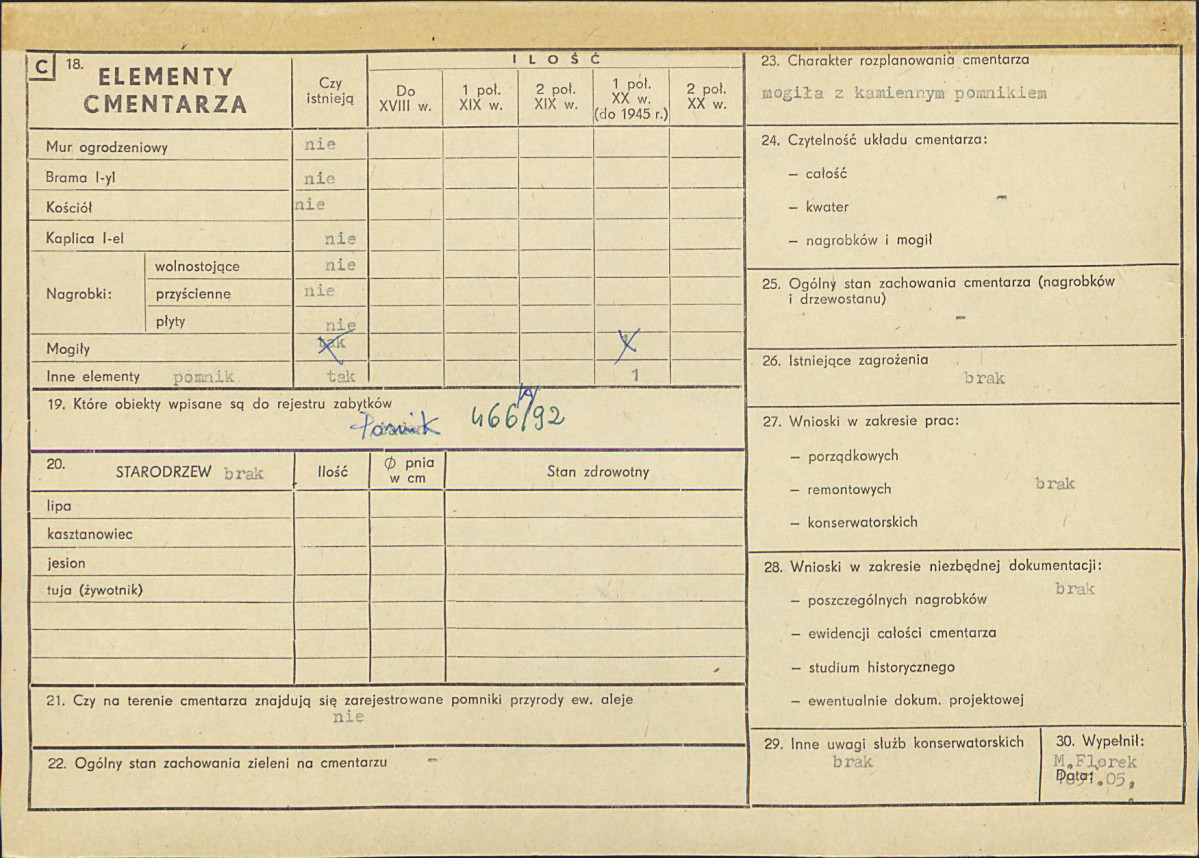 C 18. ELEMENTY CMENTARZA
Czy istnieją
ILOŚĆ
Do XVIII w.
1 poł. XIX w.
2 poł. XIX w.
1 poł. XX w. (do 1945 r.)
2 poł. XX w.
Mur ogrodzeniowy nie
Brama I-yl nie
Kościół nie
Kaplica I-el nie
Nagrobki: wolnostojące nie
przyścienne nie
płyty nie
Mogiły tak
Inne elementy pomnik tak 1
19. Które obiekty wpisane są do rejestru zabytków
Pomnik 466/A/92
20. STARODRZEW brak
Ilość
Ø pnia w cm
Stan zdrowotny
lipa
kasztanowiec
jesion
tuja (żywotnik)
21. Czy na terenie cmentarza znajdują się zarejestrowane pomniki przyrody ew. aleje
nie
22. Ogólny stan zachowania zieleni na cmentarzu –
23. Charakter rozplanowania cmentarza
mogiła z kamiennym pomnikiem
24. Czytelność układu cmentarza:
– całość
– kwater –
– nagrobków i mogił
25. Ogólny stan zachowania cmentarza (nagrobków
i drzewostanu)
–
26. Istniejące zagrożenia
brak
27. Wnioski w zakresie prac:
– porządkowych
– remontowych brak
– konserwatorskich
28. Wnioski w zakresie niezbędnej dokumentacji:
brak
– poszczególnych nagrobków
– ewidencji całości cmentarza
– studium historycznego
– ewentualnie dokum. projektowej
29. Inne uwagi służb konserwatorskich
brak
30. Wypełnił:
M.Florek
Data: 1991.05.